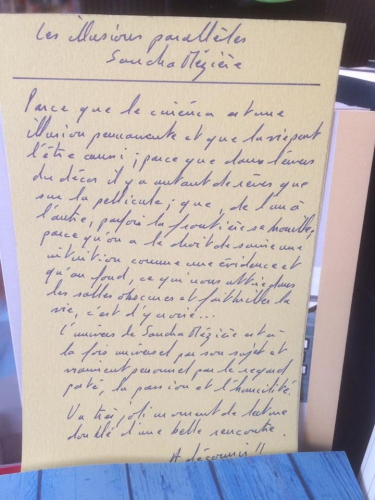 Les illusions parallèles
Sandra Mézière
Parce que le cinéma est une
illusion permanente et que la vie peut
l'être aussi ; parce que dans l'envers
du décor il y a autant de rêves que
sur la pellicule ; que, de l'un à
l'autre, parfois la frontière se brouille,
parce qu'on a le droit de suivre une
intuition comme une évidence et
qu'au fond, ce qui nous attire dans
les salles obscures et fait briller la
vie, c'est d'y croire...
L'univers de Sandra Mézière est à
la fois universel par son sujet et
vraiment personnel par le regard
porté, la passion et l'humilité.
Un très joli moment de lecture
doublé d'une belle rencontre.
A découvrir !!